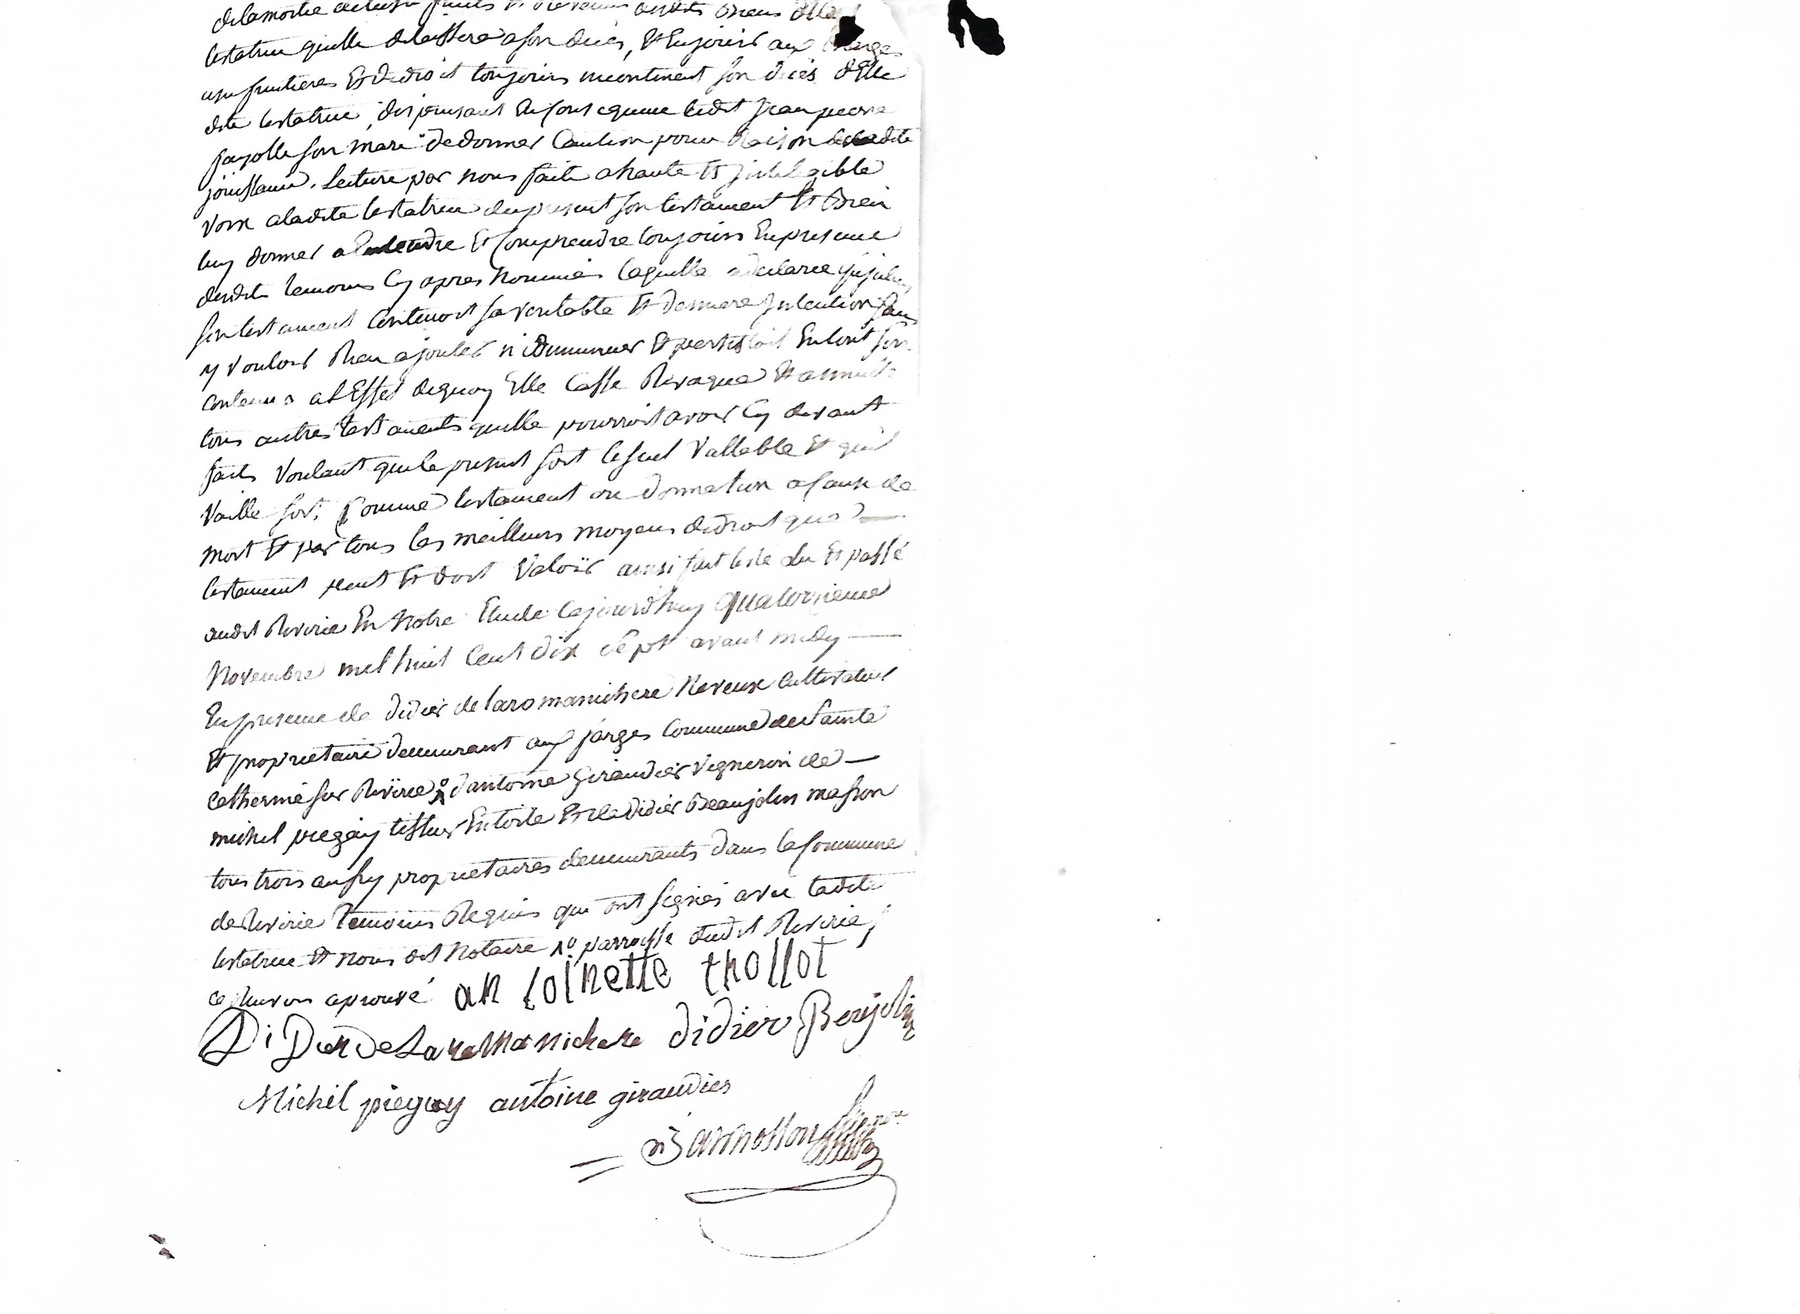 de la moitié de tous fruits et revenus desdits biens d'elle
testatrice quelle delaissera a son deces, Et En jouir aux charges
usufruitieres Et de droit toujours incontinent son deces d'Elle
dite testatrice, dispensant En consequence ledit Jean pierre
fayolle son mari de donner Caution pour Raison de ladite
jouissance. Lecture par nous faite a haute Et intelegible
voix a ladite testatrice du present son testament Et Bien
luy donner a Entendre Et Comprendre toujours En presence
desdits temoins Cy apres nommés laquelle a declaré que
son testament Contenoit sa veritable Et derniere intention sans
y vouloir Rien ajouter ni diminuer Et persistoit En tout son
contenu a l'Effet de quoy Elle Casse Revoque Et annulle
tous autres testaments quelle pourroit avoir Cy devant
faits Voulant que le present soit le seul Vallable Et quil
Vaille soit Comme testament ou donnation a cause de
mort Et par tous les meilleurs moyens de droit que —
testament peut Et doit Valoir ainsi fait leu Et passé
audit Riverie En Notre Etude Cejourdhuy quatorzieme
Novembre mil huit Cent dix sept avant midy —
En presence de didier de laromanichere Neveux Cultivateur
Et proprietaire demeurant aux jarges Commune de Sainte
Catherine sur Riverie d'antoine Giraudier Vigneron de —
michel piegay tissier En toile Et de didier Beaujolin masson
tous trois aussy proprietaires demeurants dans la Commune
de Riverie temoins Requis qui ont signés avec ladite
testatrice Et nous dit Notaire 1o. parroisse dudit Riverie
ce Renvoy aprouvé an toinette thollot
DiDier De LaroMaNichere didier Beujolin
Michel piegay antoine giraudier